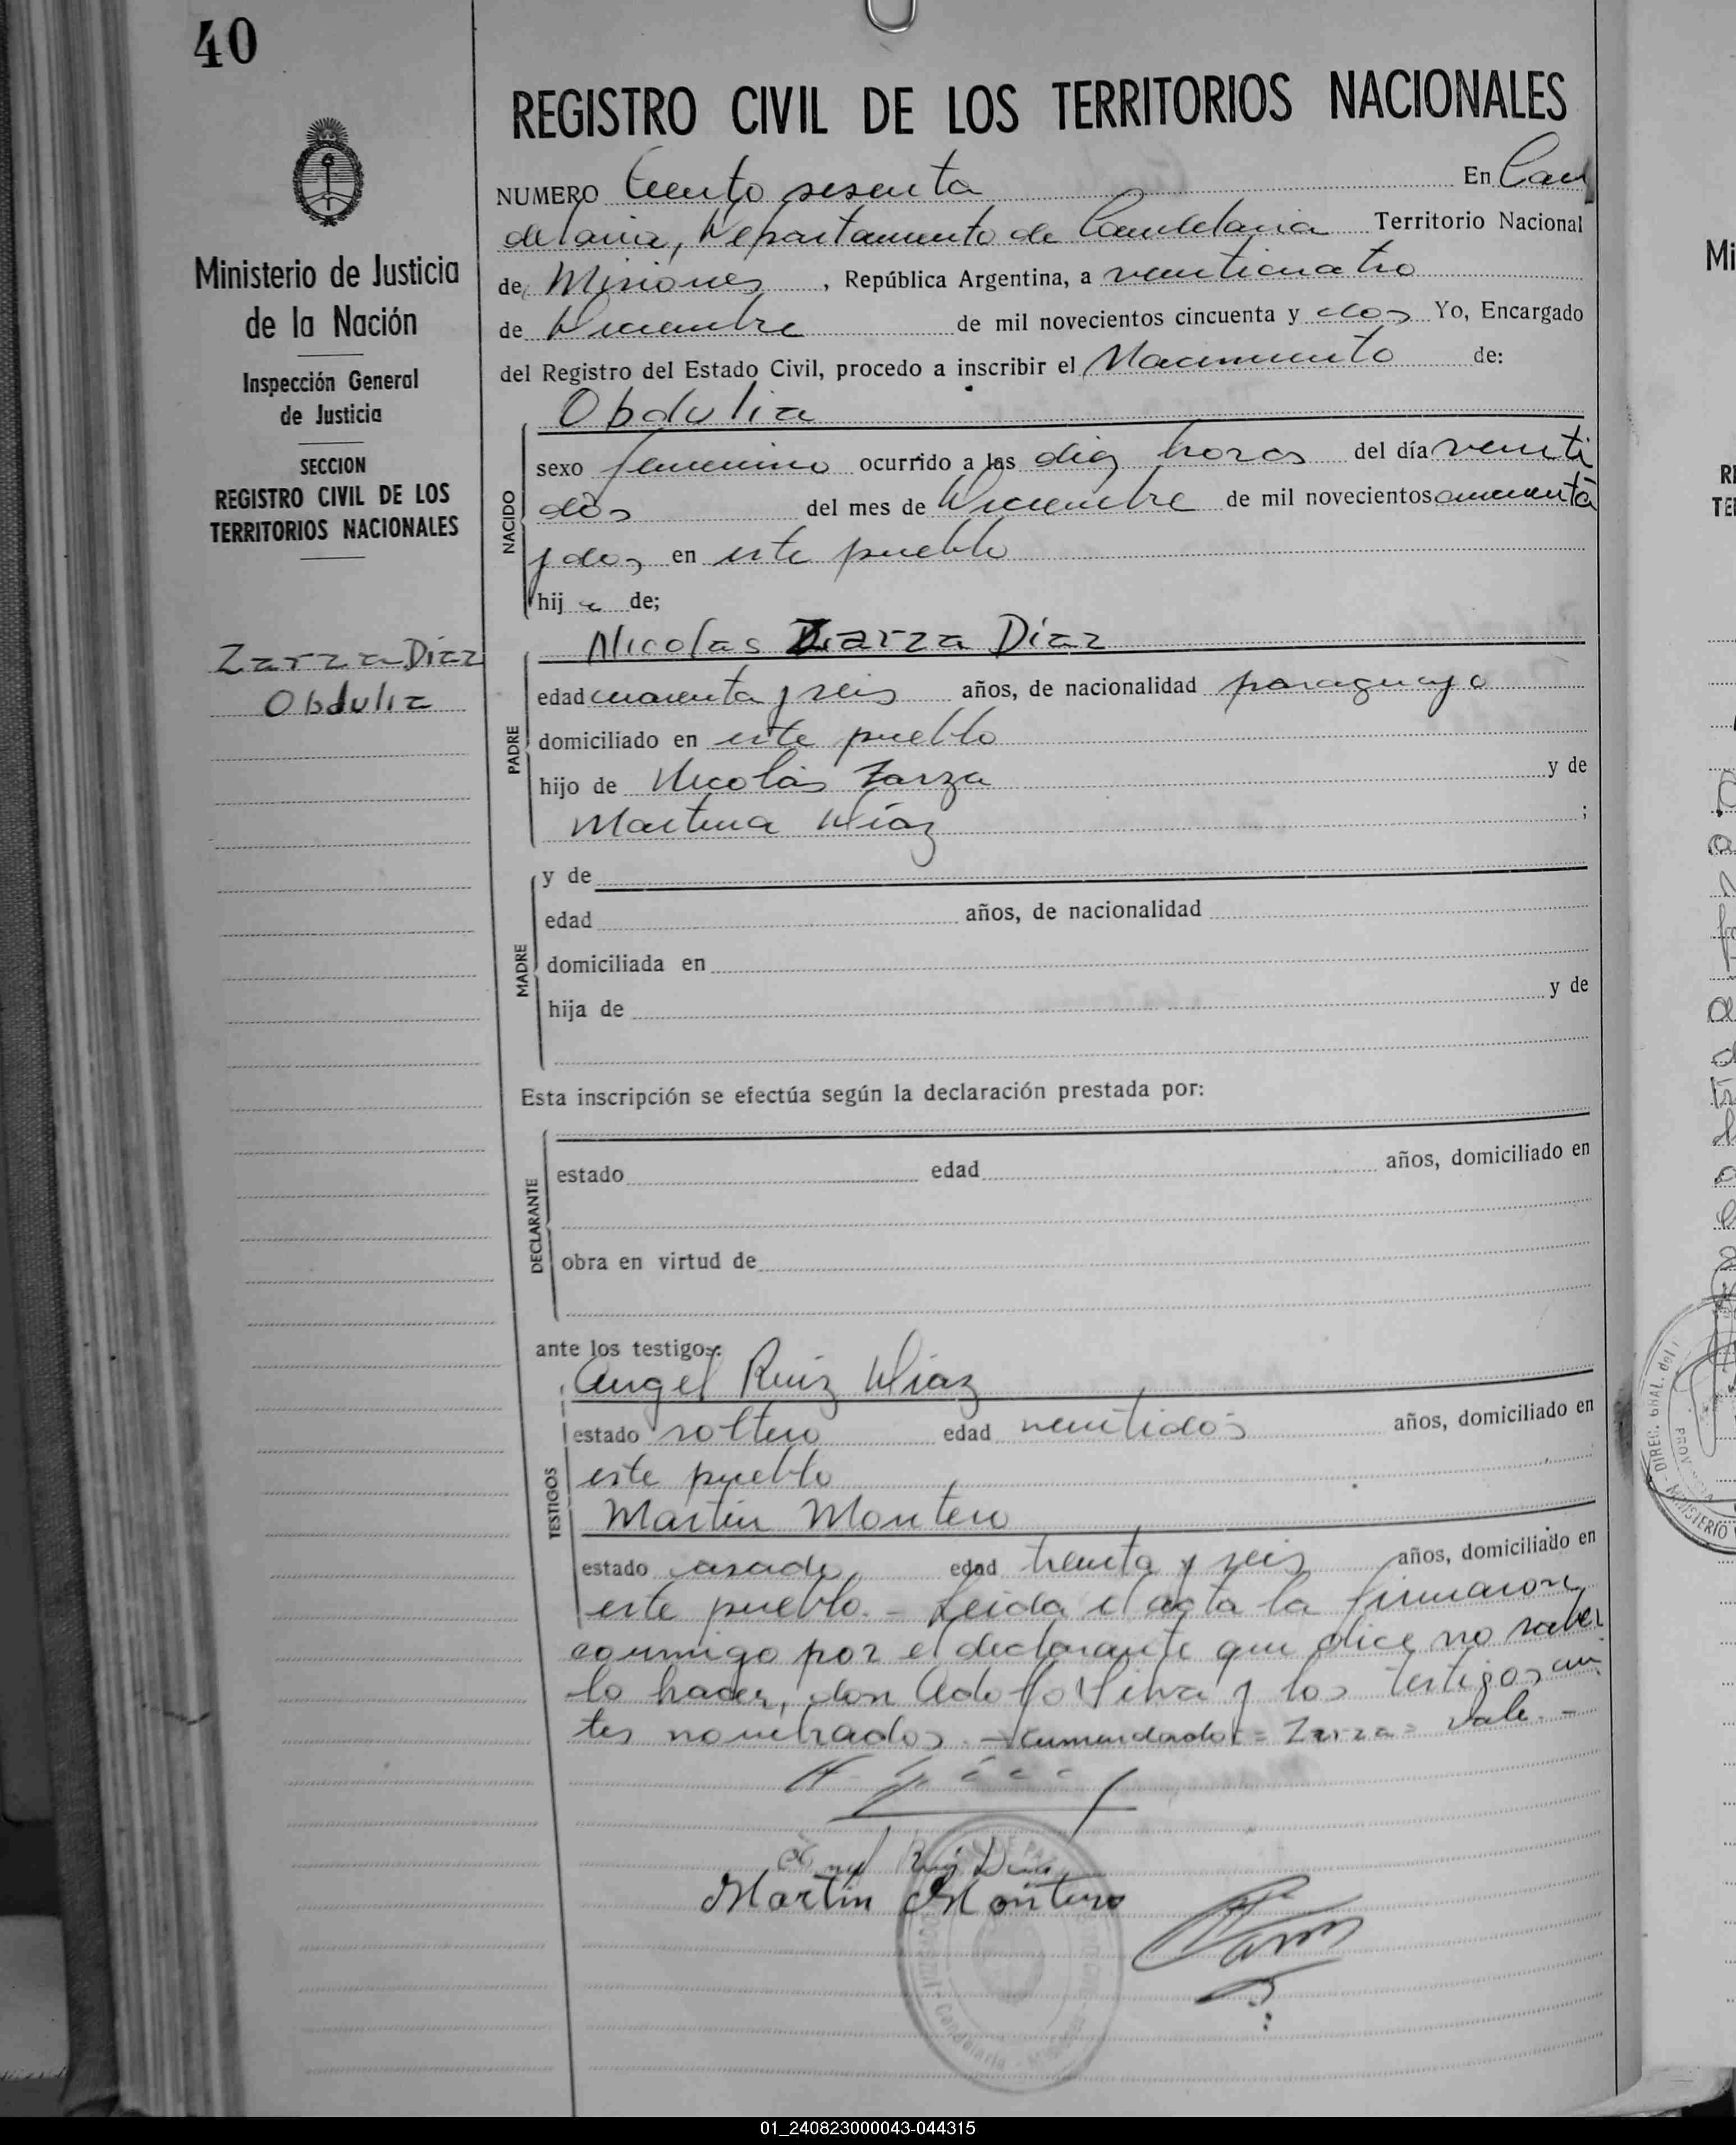 40
REGISTRO CIVIL DE LOS TERRITORIOS NACIONALES
Ministerio de Justicia
de la Nación
Inspección General
de Justicia
SECCION
REGISTRO CIVIL DE LOS
TERRITORIOS NACIONALES
Zarza Diaz
Obdulia
NUMERO Ciento sesenta En Can
delaria, Departamento de Candelaria Territorio Nacional
de Misiones, República Argentina, a veinticuatro
de Diciembre de mil novecientos cincuenta y dos Yo, Encargado
del Registro del Estado Civil, procedo a inscribir el Nacimiento de:
Obdulia
NACIDO
sexo femenino ocurrido a las diez horas del día veinti
dós del mes de Diciembre de mil novecientos cincuenta
y dos en este pueblo
hija de;
Nicolas Zarza Díaz
PADRE
edad cuarenta y seis años, de nacionalidad paraguayo
domiciliado en este pueblo
hijo de Nicolás Zarza y de
Martina Díaz ;
MADRE
y de
edad años, de nacionalidad
domiciliada en
hija de y de
Esta inscripción se efectúa según la declaración prestada por:
DECLARANTE
estado edad años, domiciliado en
obra en virtud de
ante los testigos:
Angel Ruiz Díaz
TESTIGOS
estado soltero edad veintidós años, domiciliado en
este pueblo
Martin Montero
estado casado edad treinta y seis años, domiciliado en
este pueblo. - Leida el acta la firmaron
conmigo por el declarante que dice no saber
lo hacer, don Adolfo Silva y los testigos an
tes nombrados. - Enmendado: = Zarza = Vale. -
Ruiz Diaz
Martin Montero
Candelaria - Misiones
DIREC. GRAL. del
MINISTERIO
01_240823000043-044315